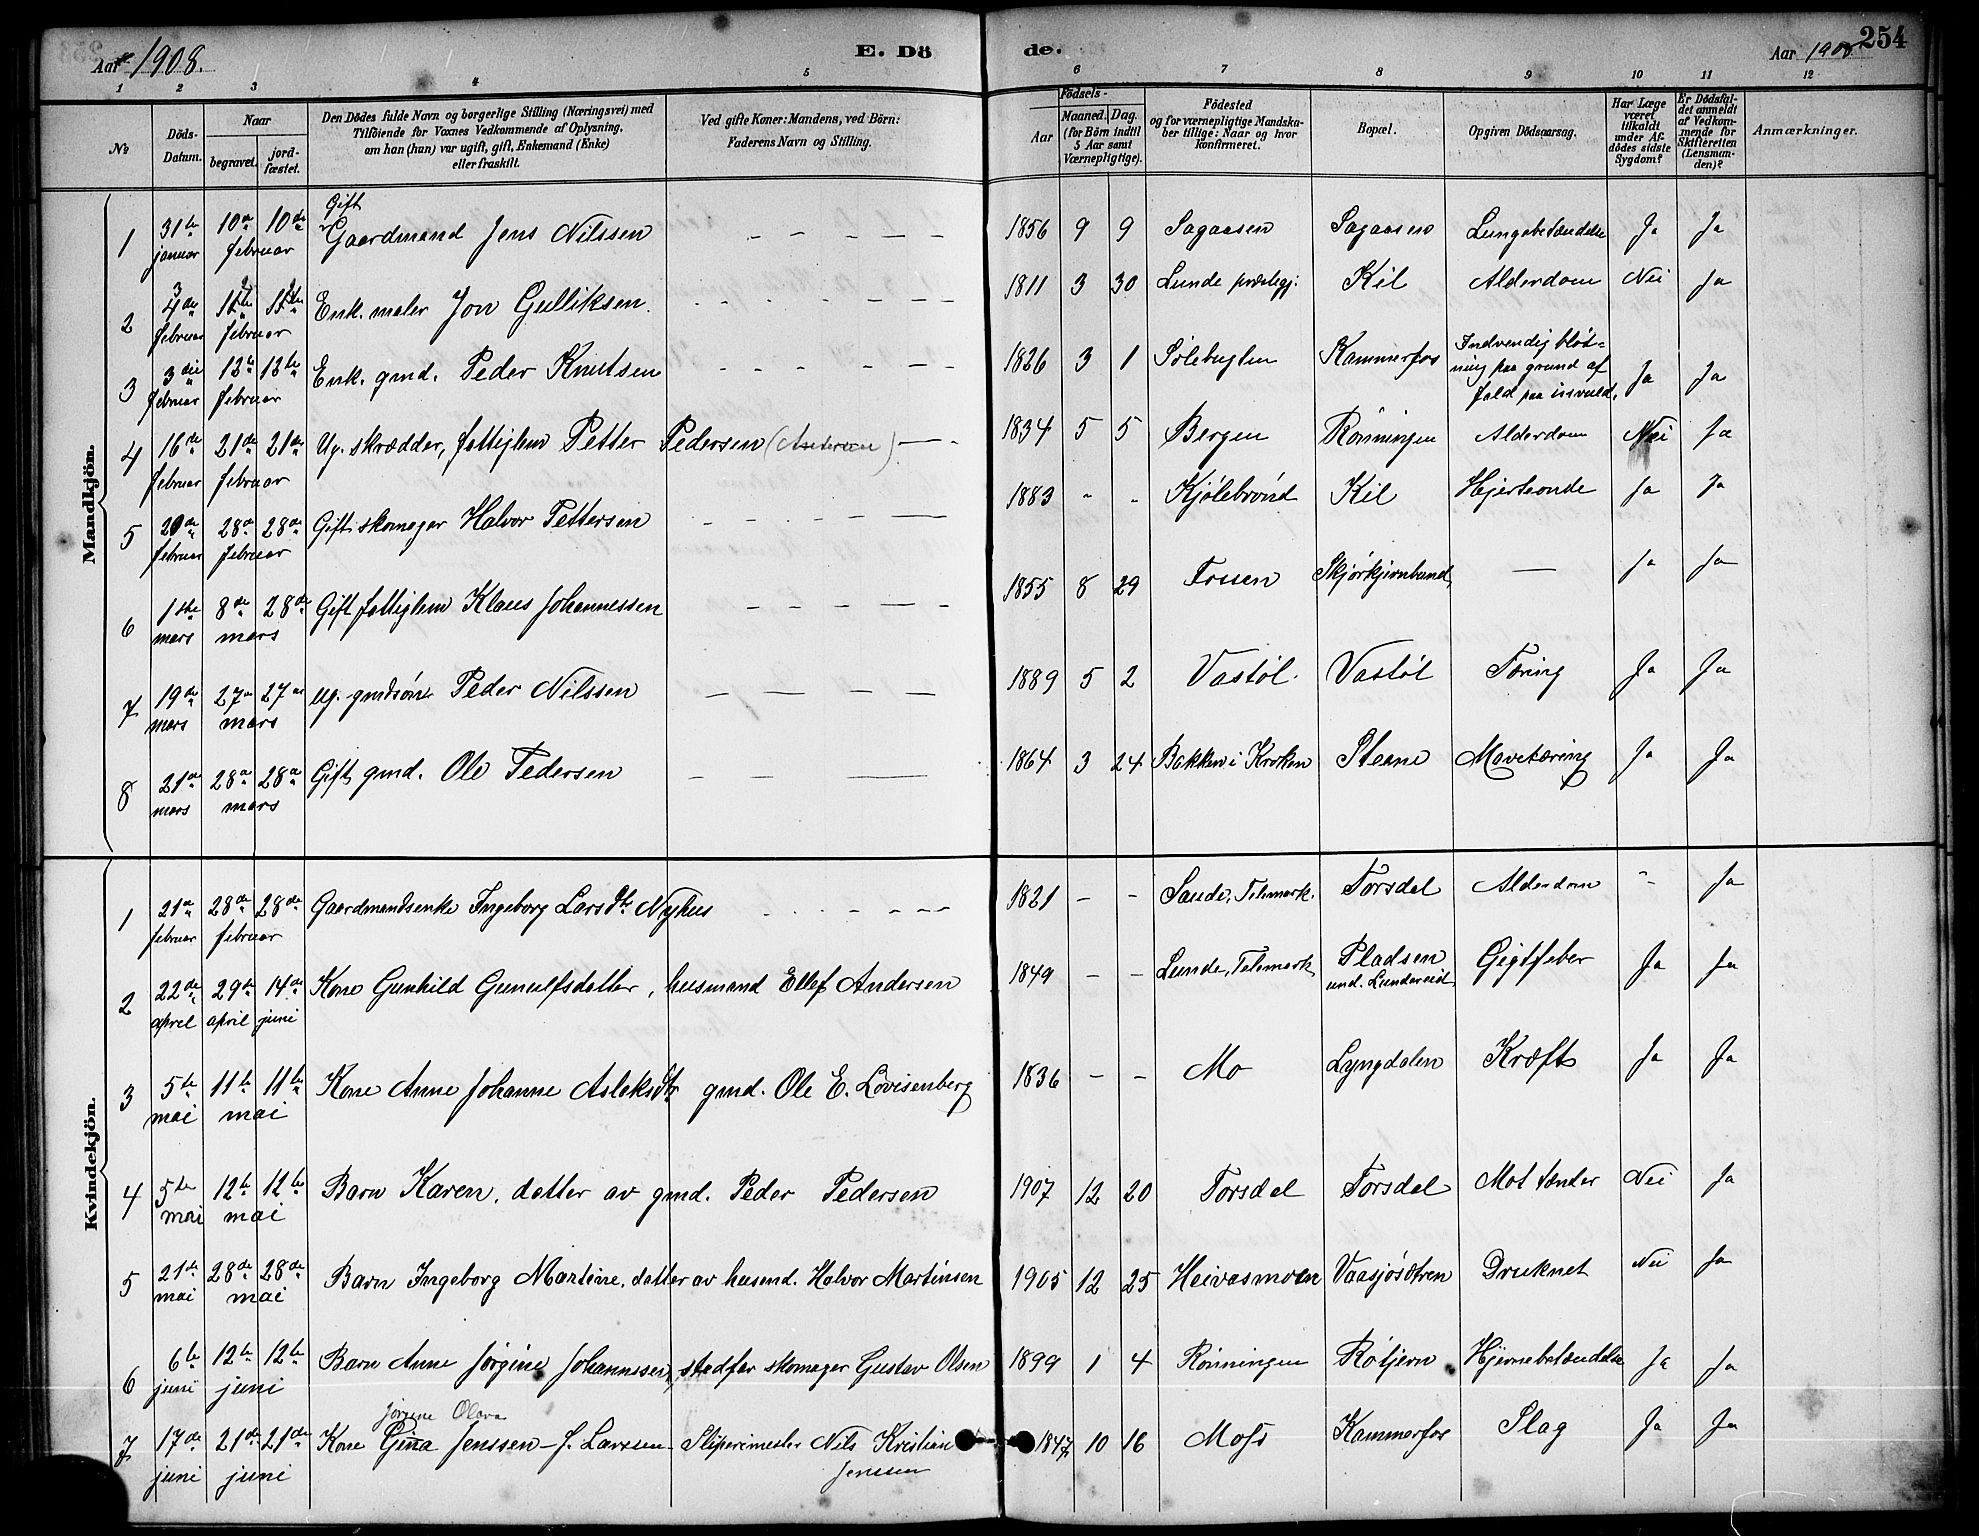 Aar 1908.
E. Dö de.
Aar 1908
254
1 2 3 4 5 6 7 8 9 10 11 12
№
Döds-Datum.
Naar
begravet.
jord-fæstet.
Den Dödes fulde Navn og borgerlige Stilling (Næringsvei) med
Tilföiende for Voxnes Vedkommende af Oplysning,
om han (hun) var ugift, gift, Enkemand (Enke)
eller fraskilt.
Ved gifte Koner: Mandens, ved Börn:
Faderens Navn og Stilling.
Födsels-
Aar
Maaned. Dag.
(for Börn indtil
5 Aar samt
Værnepligtige).
Födested
og for værnepligtige Mandska-
ber tillige: Naar og hvor
konfirmeret.
Bopæl.
Opgiven Dödsaarsag.
Har Læge
været
tilkaldt
under Af-
dödes sidste
Sygdom?
Er Dödsfal-
det anmeldt
af Vedkom-
mende for
Skifteretten
(Lensman-
den)?
Anmærkninger.
Mandkjön.
1 31te januar 10de 10de februar Gift Gaardmand Jens Nilssen – – – – – 1856 9 9 Sagaasen Sagaasen Lungebetændelse Ja Ja
2 4de februar februar Enk. maler Jon Gulliksen. – – – – – 1811 3 30 Lunde præstegj: Kil Alderdom Nei Ja
3 3die februar 12te 12te februar Enk. gmd. Peder Knutsen – – – – – 1826 3 1 Kammerfos Indvendig blød-
ning paa grund af
fald paa isvuld. Ja Ja
4 16de februar 21de 21de februar Ug. skrædder, fattiglem Petter Pedersen 1834 5 5 Bergen Rönningen Alderdom Nei Ja
5 20de februar 28de 28de februar Gift skomager Halvor Pettersen – – – – 1883 - - Kjölebrönd Kil Hjerteonde Ja Ja
6 1ste mars 8de 28de mars Gift fattiglem Klaus Johannessen – – – – – 1855 8 29 Fossen — Ja Ja
7 19de mars 27de 27de mars Ug. gmdsön Peder Nilssen – – – – 1889 5 2 Vastöl. Vastöl Tæring Ja Ja
8 21de mars 28de 28de mars Gift gmd. Ole Pedersen – – – 1864 3 24 Bakken i Kroken Steane Mavetæring Ja Ja
Kvindekjön.
1 21de februar 28de 28de februar Gaardmandsenke Ingeborg Larsdtr. Nyhus – – – – 1821 – – Saude, Telemark. Torsdal Alderdom - Ja
2 22de april 29de april 14de juni Kone Gunhild Gunulfsdatter, husmand Ellef Andersen 1849 – – Lunde, Telemark Pladsen
und. Lundereid Gigtfeber Ja Ja
3 5te mai 11te 11te mai Kone Anne Johanne Aslaksdtr. gmd. Ole E. Lovisenberg 1836 – – Mo Lyngdalen Kræft Ja Ja
4 5te mai 12te 12te mai Barn Karen, datter av gmd. Peder Pedersen 1907 12 20 Torsdal Torsdal Mot tænder Nei Ja
5 21de mai 28de 28de mai Barn Ingeborg Martine, datter av husmd. Halvor Martinsen 1905 12 25 Heivasmoen Vaasjösætren Druknet Nei Ja
6 6te juni 12te 12te juni Barn Anne Jörgine Johannessen, stedfar skomager Gustav Olsen 1899 1 4 Rönningen Rötjern Hjernebetændelse Ja Ja
Jörgine Olava
7 17de juni 21de 21de juni Kone Gina Jenssen – f. Larssen Sliperimester Nils Kristian
Jenssen 1847 10 16 Moss Kammerfos Slag Ja Ja